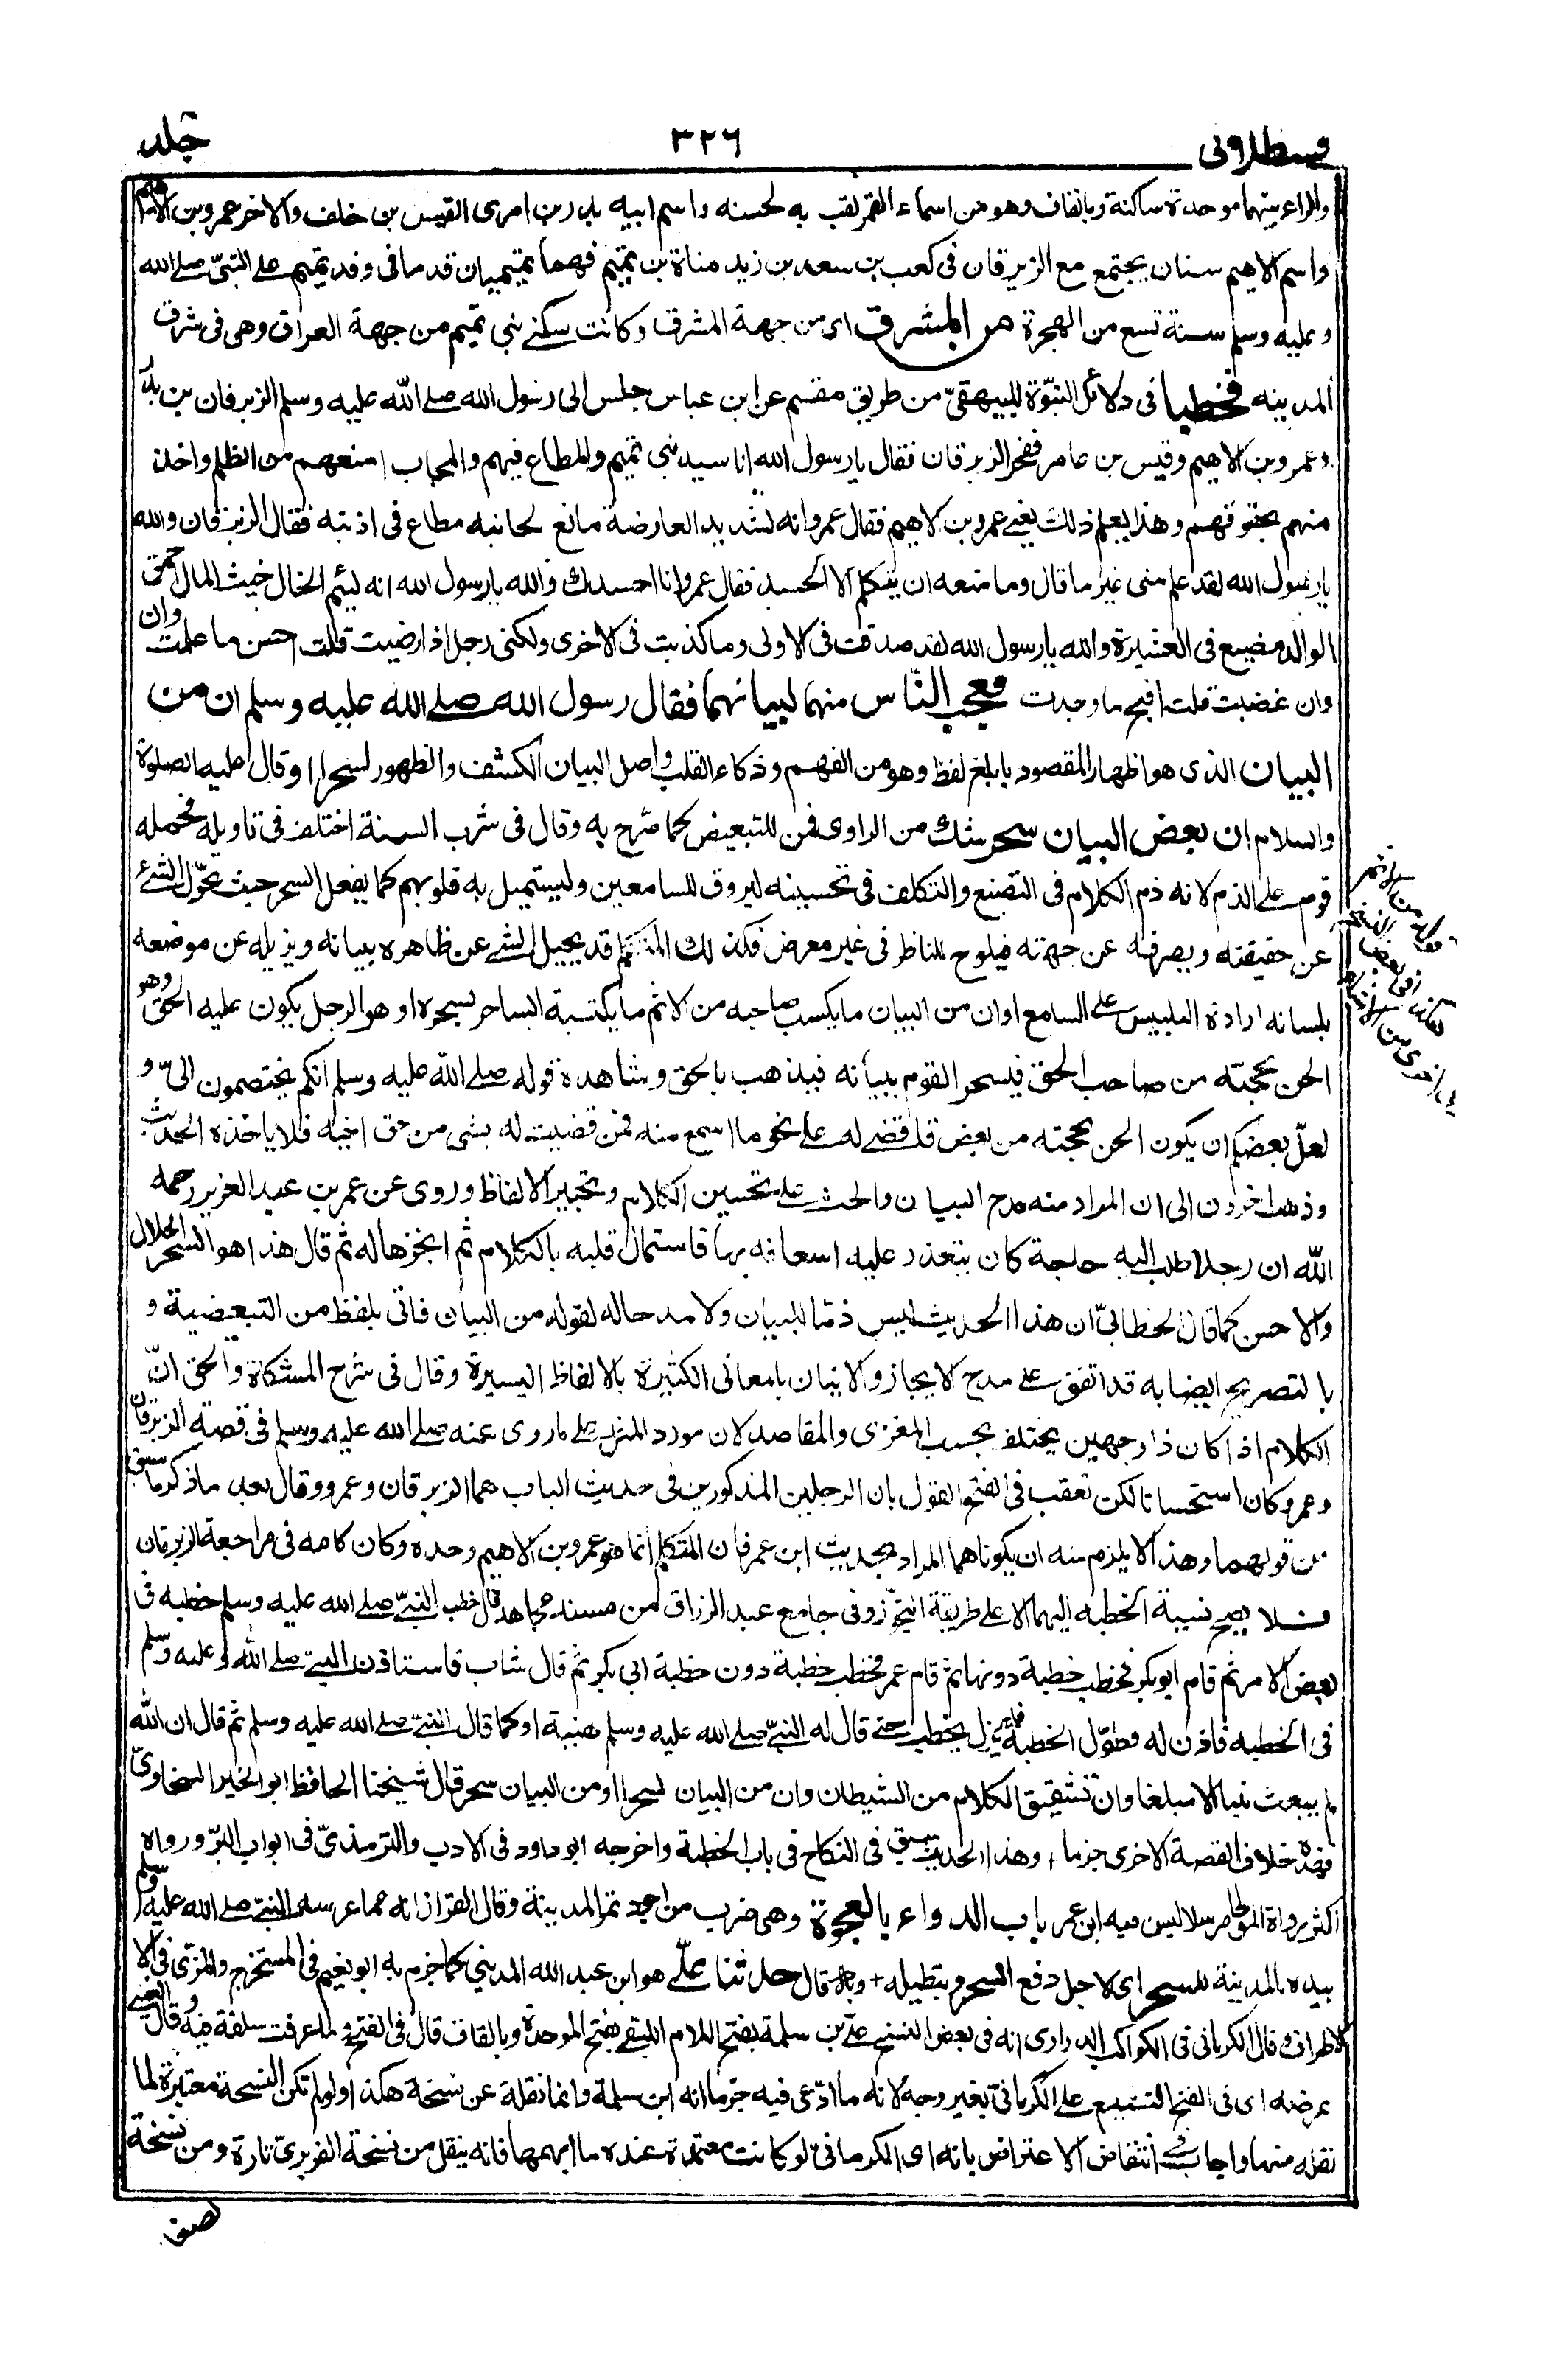 قسطلانی ٣٢٦ جلد
والراء بينهما موحدة ساكنة وبالقاف وهو من اسماء القمر لقب به لحسنه واسم ابيه بدر بن امرئ القيس بن خلف والاخر عمرو بن الاهيم
واسم الاهيم سنان يجتمع مع الزبرقان فى كعب بن سعد بن زيد مناة بن تميم فهما تميميان قدما فى وفد تميم على النبىّ صلے الله
وعليه وسلم سنة تسع من الهجرة من المشرق اى من جهة المشرق وكانت سكنے بنى تميم من جهة العراق وهى فى شرق
المدينه فخطبا فى دلائل النبّوة للبيهقىّ من طريق مقسم عن ابن عباس جلس الى رسول الله صلے الله عليه وسلم الزبرقان بن بدر
وعمرو بن الاهيم وقيس بن عامر ففخر الزبرقان فقال يا رسول الله انا سيد بنى تميم والمطاع فيهم والمجاب امنعهم من الظلم واخذ
منهم بحقوقهم وهذا يعلم ذلك يعنے عمرو بن الاهيم فقال عمرو انه لشديد العارضة مانع لجانبه مطاع فى اذنيه فقال الزبرقان والله
يا رسول الله لقد علم منى غير ما قال وما منعه ان يتكلم الا الحسد فقال عمرو انا احسدك والله يا رسول الله انه لئيم الخال خبيث المال احمق
الوالد مضيع فى العشيرة والله يا رسول الله لقد صدقت فى الاولى وما كذبت فى الاخرى ولكنى رجل اذا رضيت قلت احسن ما علمت وان
وان غضبت قلت اقبح ما وجدت فعجب النّاس منهما لبيانهما فقال رسول الله صلے الله عليه وسلم ان من
البيان الذى هو اظهار المقصود بابلغ لفظ وهو من الفهم وذكاء القلب واصل البيان الكشف والظهور لسحرا او قال عليه الصلوة
والسلام ان بعض البيان سحر شك من الراوى فمن للتبعيض كما صرح به وقال فى شرب السنة اختلف فى تاويله فحمله
قوم على الذم لانه ذم الكلام فى التصنع والتكلف فى تحسينه ليروق للسامعين وليستميل به قلوبهم كما يفعل السحر حيث يحوّل الشئ
عن حقيقته ويصرفه عن جهته فيلوح للناظر فى غير معرض فكذلك المتكلم قد يحيل الشے عن ظاهره ببيانه ويزيله عن موضعه
بلسانه ارادة التلبيس على السامع او ان من البيان ما يكسب صاحبه من الاثم ما يكتسبه الساحر بسحره او هو الرجل يكون عليه الحق وهو
الحن بحجته من صاحب الحق فيسحر القوم ببيانه فيذهب بالحق وشاهده قوله صلے الله عليه وسلم انكم يختصمون الىّ و
لعلّ بعضكم ان يكون الحن بحجته من بعض فاقضے له على نحو ما اسمع منه فمن قضيت له بشى من حق اخيه فلا ياخذه الحديث
وذهب اخرون الى ان المراد منه مدح البيان والحث على تحسين الكلام وتحبير الالفاظ وروى عن عمر بن عبد العزيز رحمه
الله ان رجلا طلب اليه حاجة كان يتعذر عليه اسعافه بها فاستمال قلبه بالكلام ثم انجزها له ثم قال هذا هو السحر الحلال
والاحسن كما قال الخطابىّ ان هذا الحديث ليس ذمّا للبيان ولا مدحا له لقوله من البيان فاتى بلفظ من التبعضية و
بالتصريح ايضا به قد اتفق على مدح الايجاز والاتيان بالمعانى الكثيرة بالالفاظ اليسيرة وقال فى شرح المشكاة والحق انّ
الكلام اذا كان ذا وجهين يختلف بحسب المغزى والمقاصد لان مورد المثل على ما روى عنه صلے الله عليه وسلم فى قصة الزبرقان
وعمرو كان استحسانا لكن تعقب فى الفتح القول بان الرجلين المذكورين فى حديث الباب هما الزبرقان وعمرو وقال بعد ما ذكر ما سبق
من قولهما وهذا لا يلزم منه ان يكونا هما المراد بحديث ابن عمر فان المتكلم انما هو عمرو بن الاهيم وحده وكان كلامه فى مراجعة الزبرقان
فلا يصح نسبة الخطبه اليهما الا على طريقة التجوّز وفى جامع عبد الرزاق من مسند مجاهد قال خطب النبىّ صلے الله عليه وسلم خطبه فى
بعض الامر ثم قام ابو بكر فخطب خطبة دونها ثم قام عمر فخطب خطبة دون خطبة ابى بكر ثم قال شاب فاستاذن النبى صلے الله عليه وسلم
فى الخطبه فاذن له فطوّل الخطبة فلم يزل يخطب حتے قال له النبىّ صلے الله عليه وسلم هنيّة او كما قال النبىّ صلے الله عليه وسلم ثم قال ان الله
لم يبعث نبيا الا مبلغا وان تشقيق الكلام من الشيطان وان من البيان لسحرا او من البيان سحر قال شيخنا الحافظ ابو الخير السخاوىّ
فهذه خلاف القصة الاخرى جزما، وهذا الحديث سبق فى النكاح فى باب الخطبة واخرجه ابو داود فى الادب والترمذىّ فى ابواب البرّ ورواه
اكثر رواة الموطا مرسلا ليس فيه ابن عمر باب الدواء بالعجوة وهى ضرب من اجود تمر المدينة وقال القزاز انه مما غرسه النبىّ صلے الله عليه وسلم
بيده بالمدينة للسحر اى لاجل دفع السحر وتبطيله + وبه قال حدثنا علىّ هو ابن عبد الله المدينى كما جزم به ابو نعيم فى المستخرج والمزّى فى الا
الاطراف وقال الكرمانى فى الكواكب الدرارى انه فى بعض النسخ علىّ بن سلمة بفتح اللام اللبقے بفتح الموحدة وبالقاف قال فى الفتح وما عرفت سلفه فيه وقال العينے
عرضه اى فى الفتح التشنيع على الكرمانىّ بغير وجه لانه ما ادّعى فيه جزما انه ابن سلمة وانما نقله عن نسخة هكذا ولو لم تكن النسخة معتبرة لما
نقله منها واجاب فى انتقاض الاعتراض بانه اى الكرمانى لو كانت معتمدة عنده ما ابهمها فانه ينقل من نسخة الفربرىّ تارة ومن نسخة